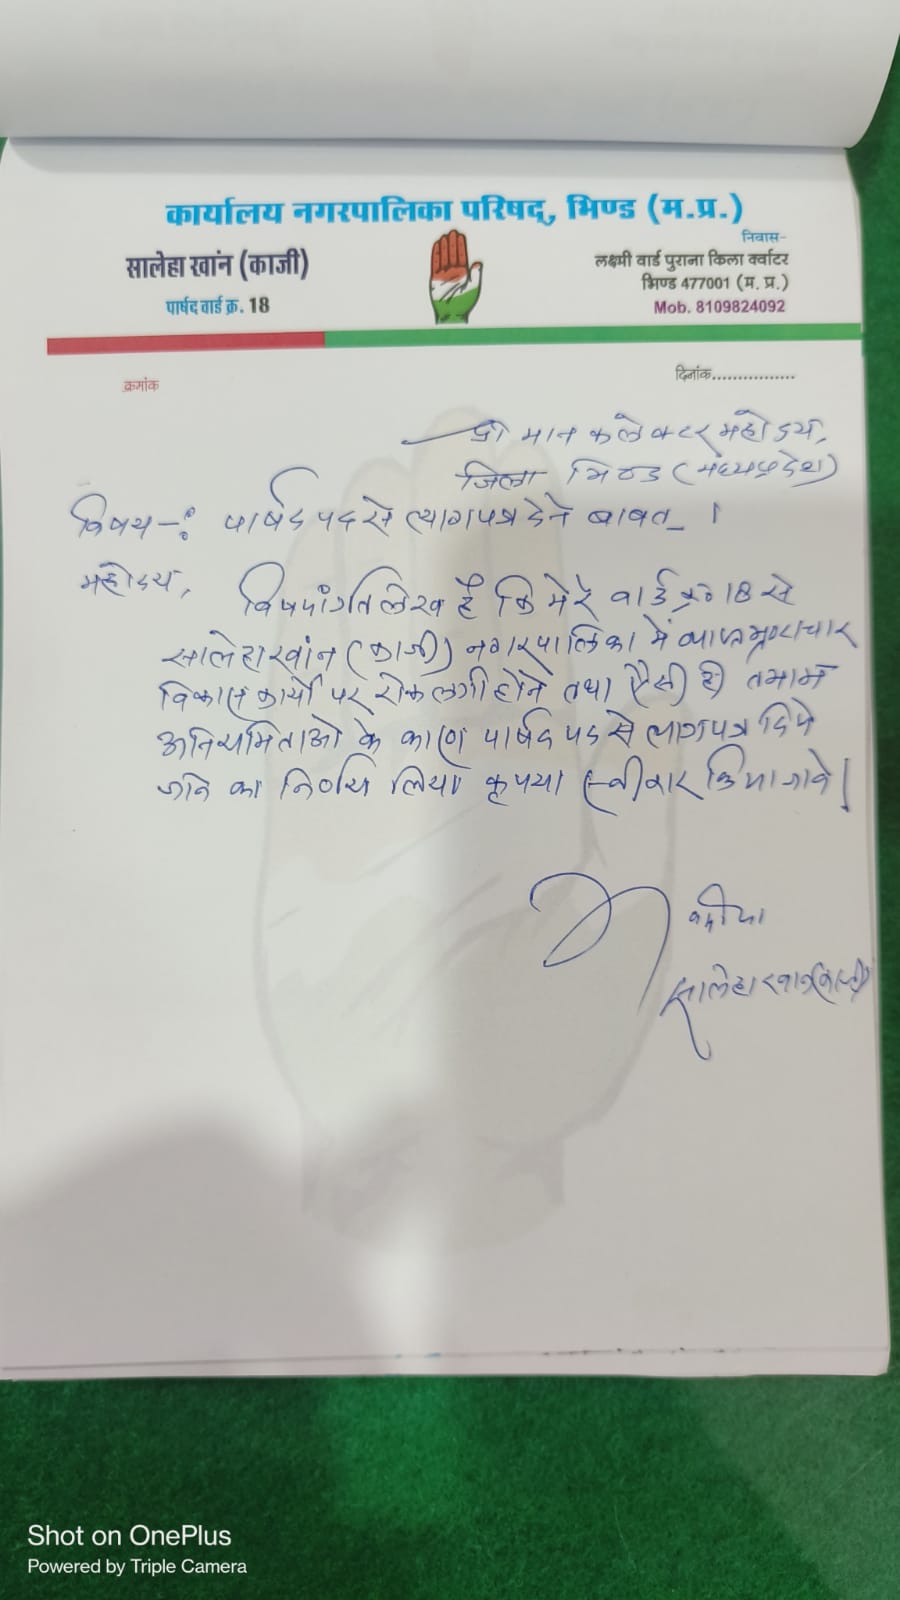 कार्यालय नगरपालिका परिषद्, भिण्ड (म.प्र.)
सालेहा खांन (काजी)
पार्षद वार्ड क्र. 18
निवास-
लक्ष्मी वार्ड पुराना किला क्वाटर
भिण्ड 477001 (म. प्र.)
Mob. 8109824092
क्रमांक
दिनांक................
श्री मान कलेक्टर महोदय,
जिला भिण्ड (मध्यप्रदेश)
विषय-: पार्षद पद से त्यागपत्र देने बावत ।
महोदय,
विषयांर्गत लेख है कि मेरे वार्ड क्र० 18 से
सालेहा खांन (काजी) नगरपालिका में व्याप्त भ्रष्टाचार
विकास कार्यो पर रोक लगी होने तथा ऐसी ही तमाम
अनियमिताओ के कारण पार्षद पद से त्यागपत्र दिये
जाने का निर्णय लिया कृपया स्वीकार किया जावे।
सालेहा खान (काजी)
Shot on OnePlus
Powered by Triple Camera